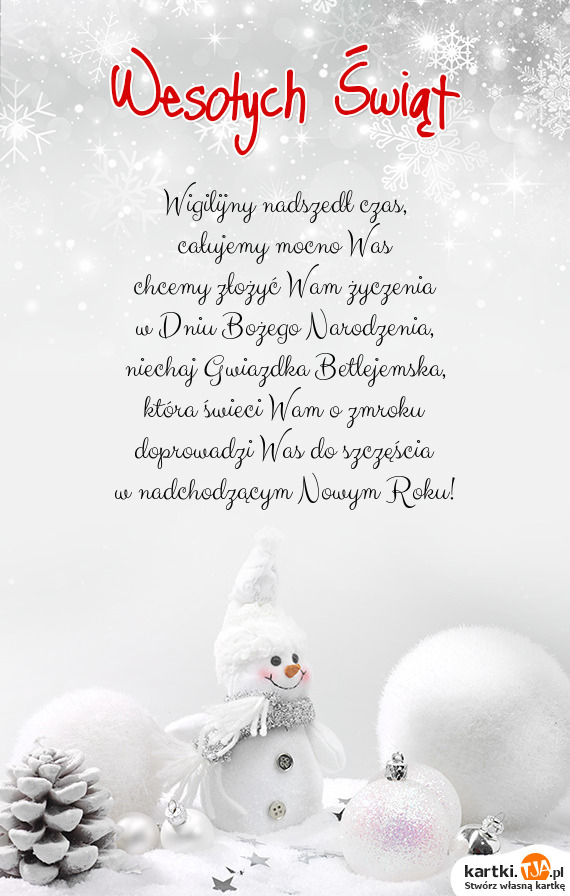 Wesołych Świąt
Wigilijny nadszedł czas,
całujemy mocno Was
chcemy złożyć Wam życzenia
w Dniu Bożego Narodzenia,
niechaj Gwiazdka Betlejemska,
która świeci Wam o zmroku
doprowadzi Was do szczęścia
w nadchodzącym Nowym Roku!
kartki.TJA.pl
Stwórz własną kartkę